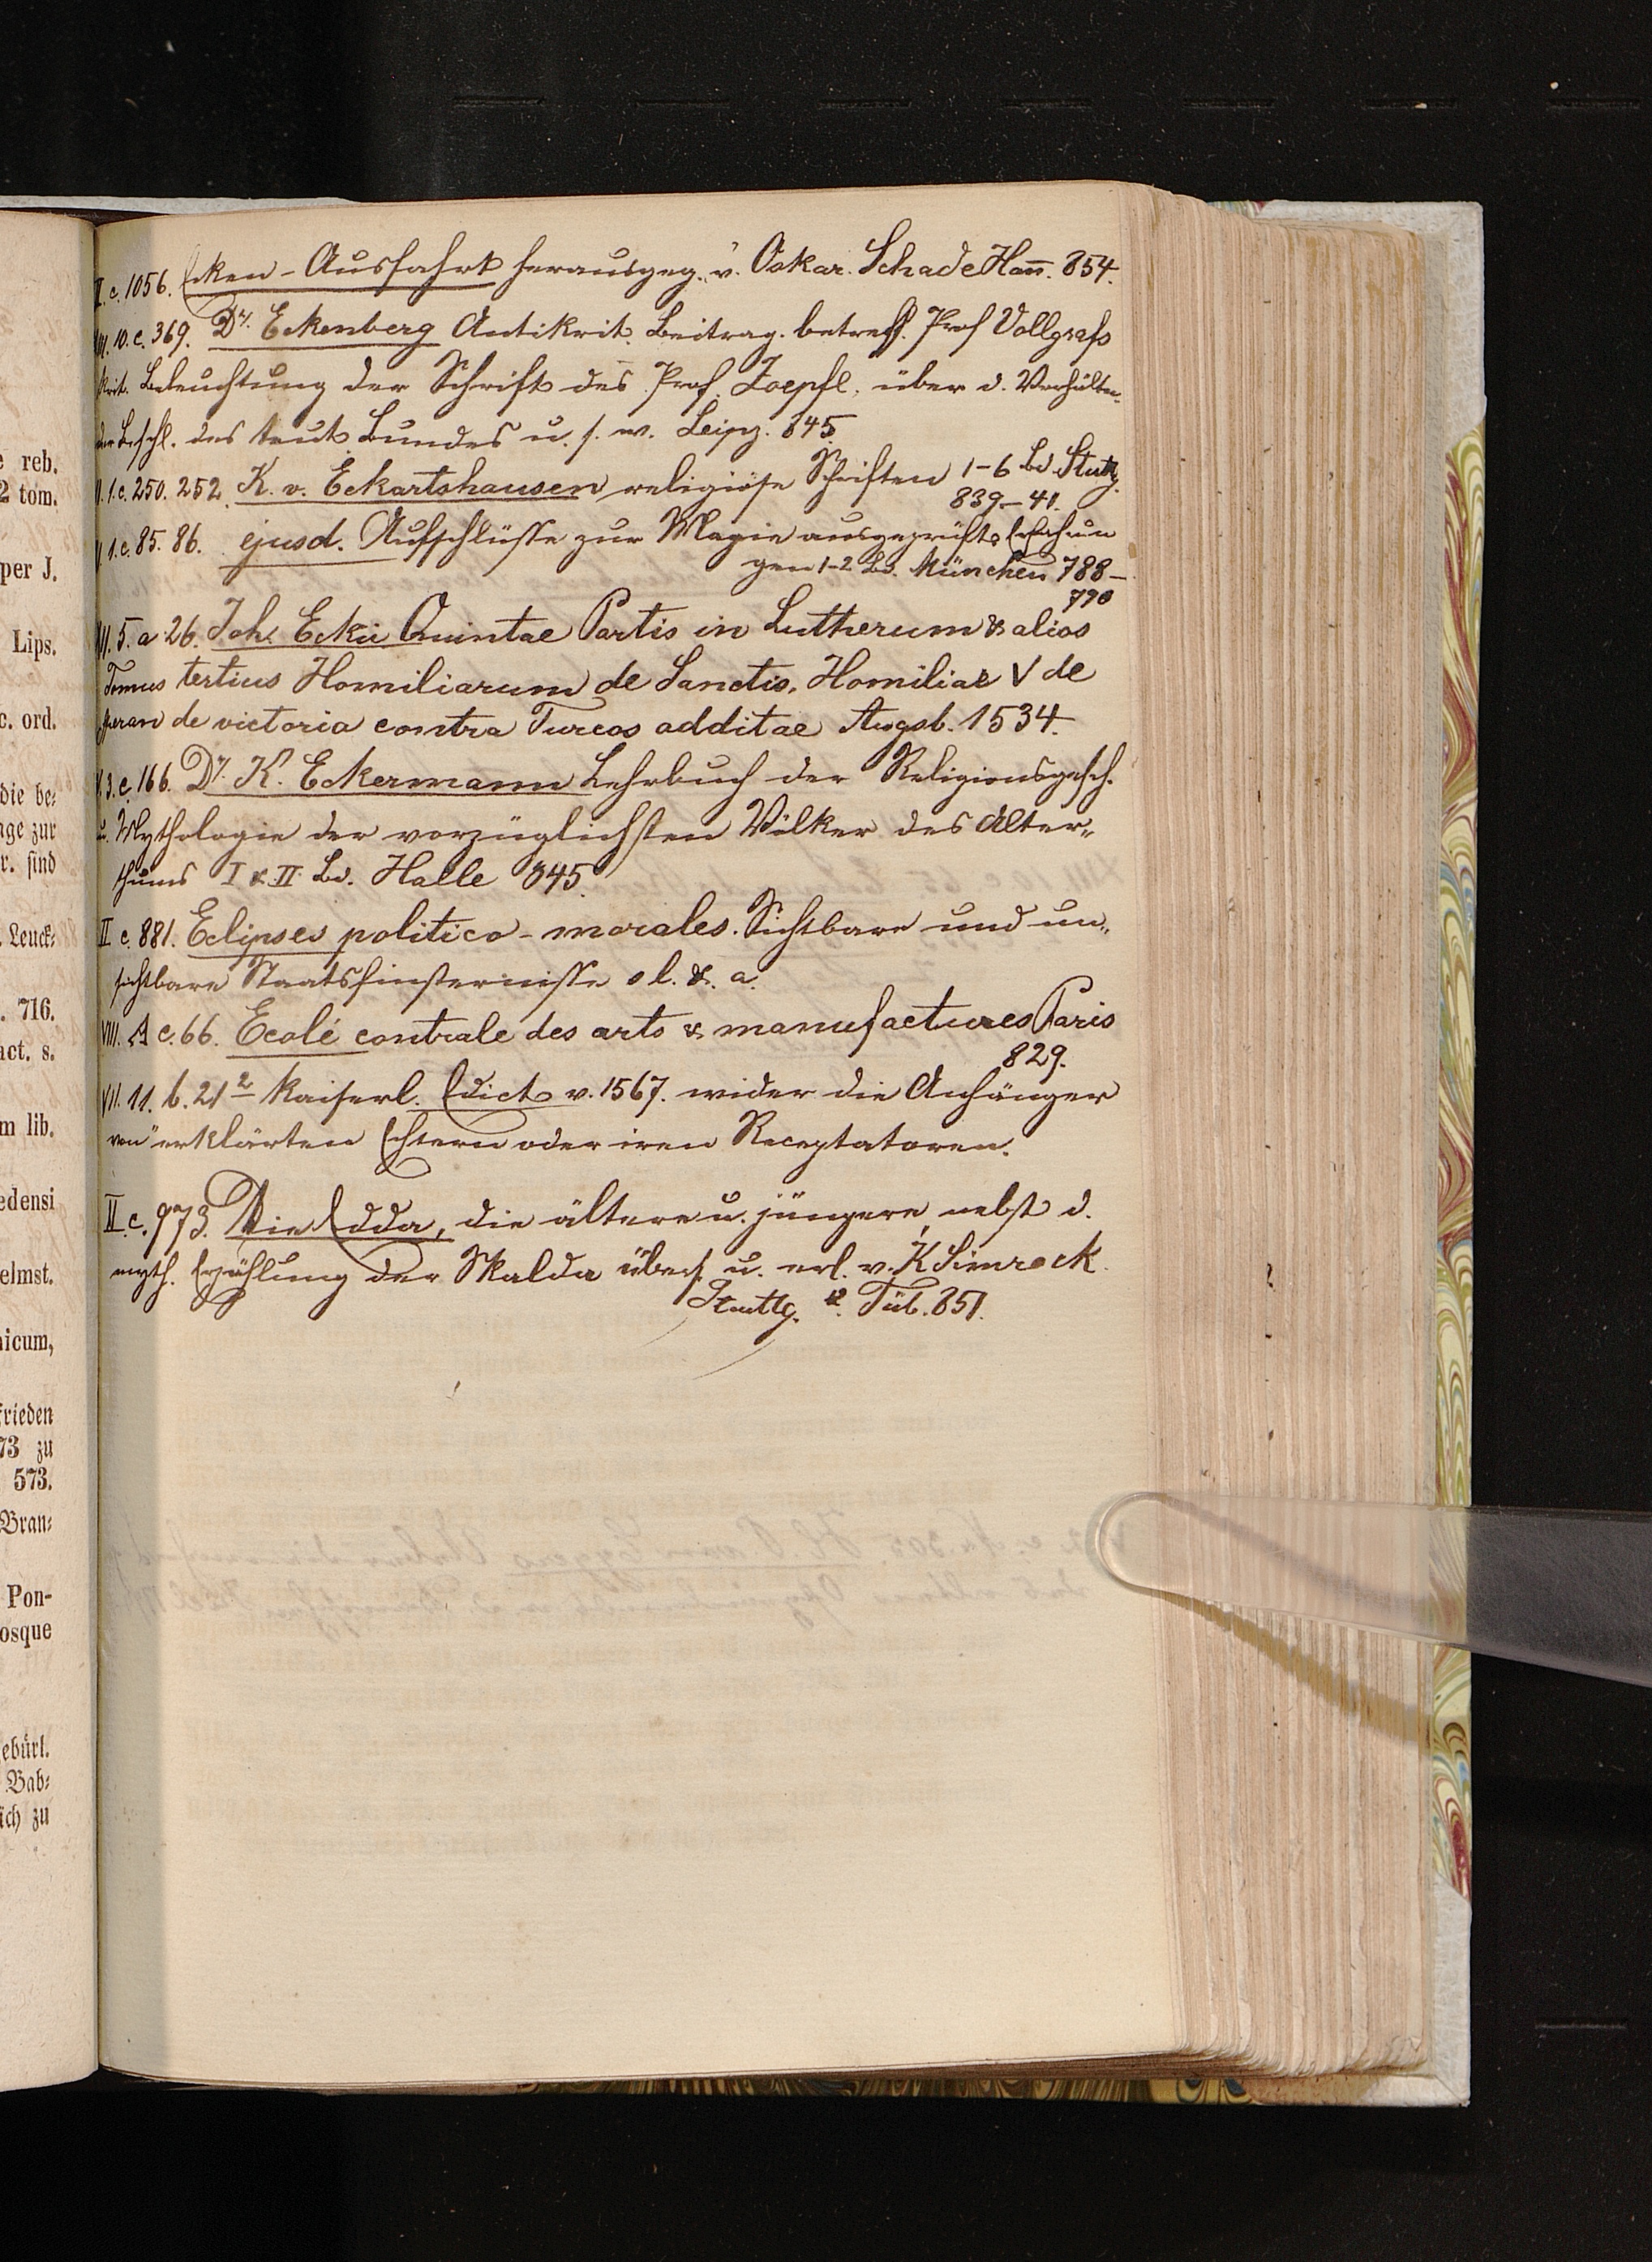 II. c. 1056. Ecken-Ausfahrt herausgeg. v. Oskar Schade Hañ. 854.
VIII. 10. c. 369. Dr. Eckenberg Antikrit. Beitrag. betreff. Prof Vollgrafs
krit. Beleuchtung der Schrift des Prof. Zoepfl, über d. Verhältn.
der Beschl. des teut. Bundes u. s. w. Leipz. 845.
V. 1. c. 250. 252. K. v. Eckartshausen religiöse Schriften 1-6 Bd. Stutg.
839-41.
V. 1. c. 85. 86. ejusd. Aufschlüsse zur Magie aus geprüft. Erfahrun
gen 1-2 Bd. München 788-
790
VII. 5. a 26. Joh. Eckii Quintae Partis in Lutherum & alios
Tomus tertius Homiliarum de Sanctis. Homiliae V de
speran de victoria contra Turcos additae Augsb. 1534.
V. 3. c. 166. Dr. K. Eckermann Lehrbuch der Religionsgesch.
u. Mythologie der vorzüglichsten Völker des Alter-
thums I & II Bd. Halle 845.
II c. 881. Eclipses politico-morales. Sichtbare und un-
sichtbare Staatsfinsternisse s l. & a.
VIII. A c. 66. Ecolé contrale des arts & manufactures Paris
829.
VII. 11. b. 21² Kaiserl. Edict v. 1567. wider die Anhänger
von erklärten Echtern oder iren Receptatoren.
II c. 973. Die Edda, die ältere u. jüngere nebst d.
myth. Erzählung der Skalda übers. u. erl. v. K Simrock.
Stuttg. & Tüb. 851.
e reb.
2 tom.
per J.
Lips.
c. ord.
die be=
age zur
r. sind
Leuck=
. 716.
act. s.
m lib.
edensi
elmst.
nicum,
frieden
73 zu
573.
Bran=
Pon-
osque
ebürt.
Bab=
ich zu